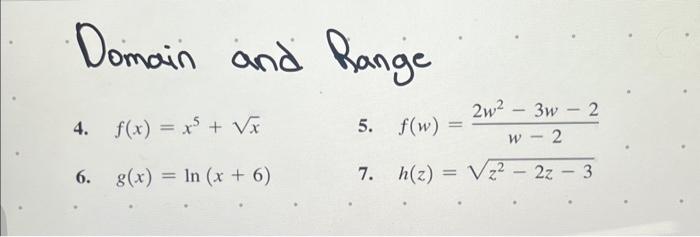 Domain and Range
4. f(x) = x⁵ + √x 5. f(w) = (2w² − 3w − 2)/(w − 2)
6. g(x) = ln (x + 6) 7. h(z) = √(z² − 2z − 3)